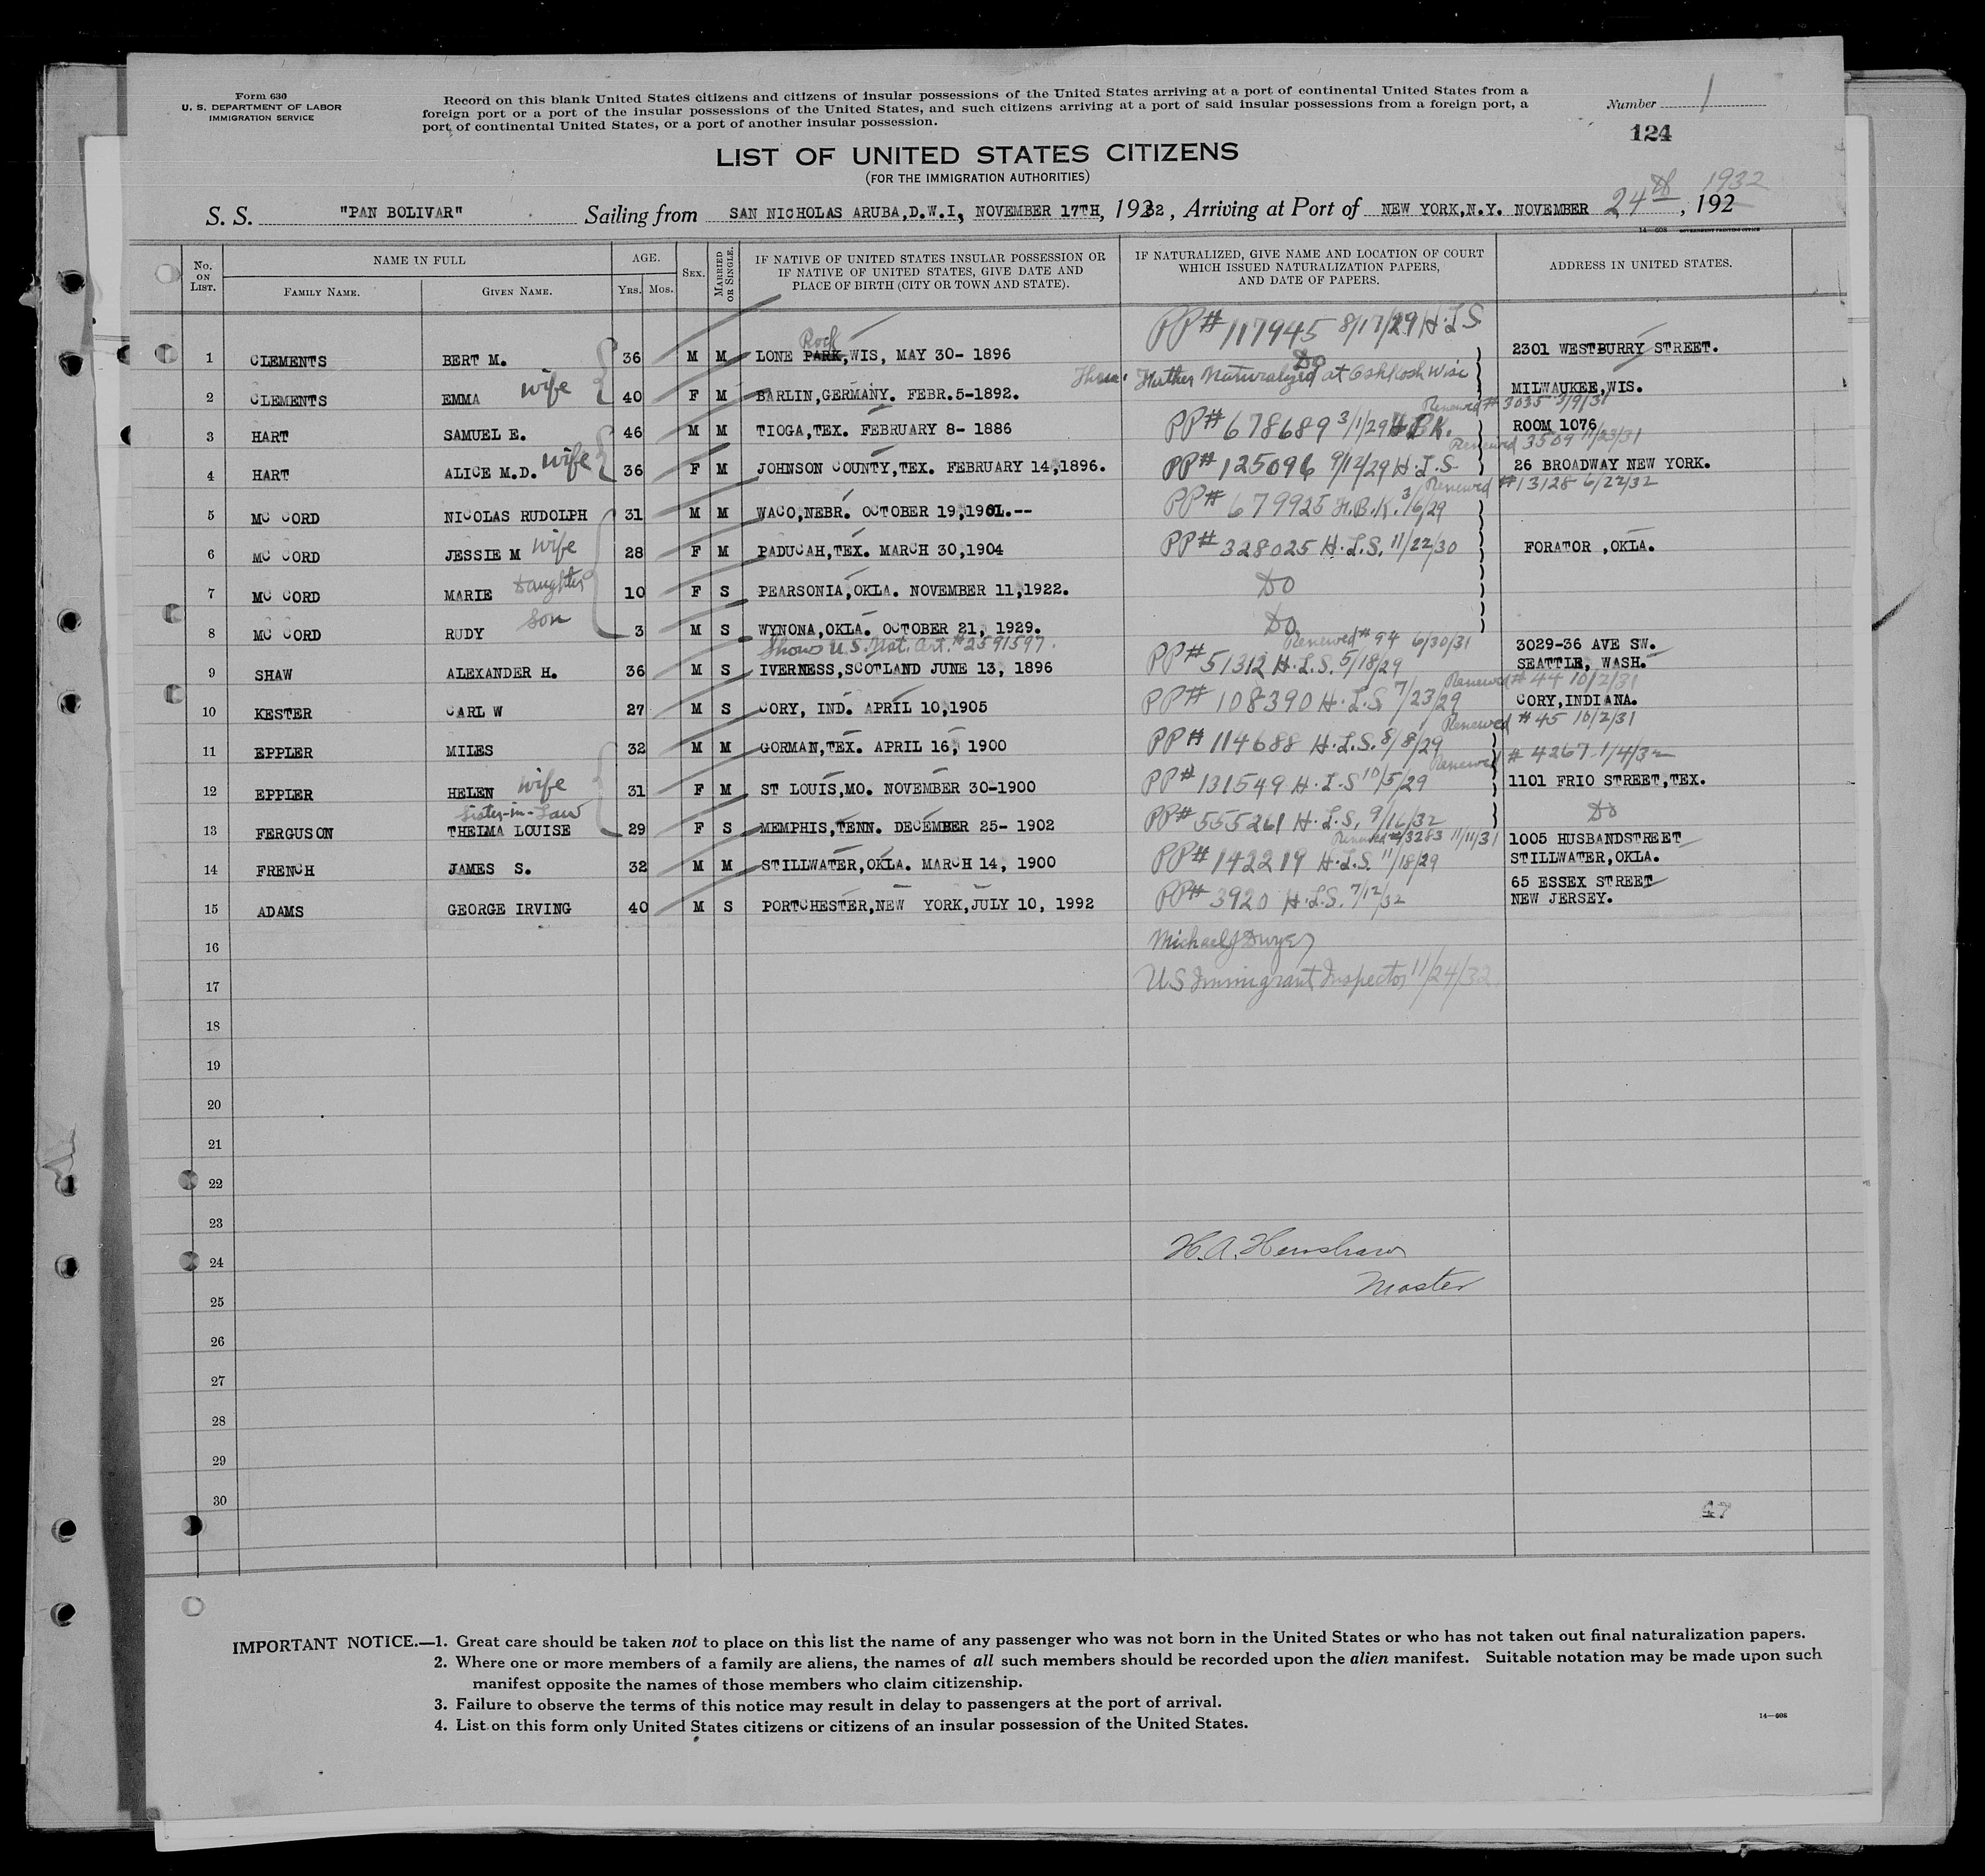 Form 630
U. S. DEPARTMENT OF LABOR
IMMIGRATION SERVICE
Record on this blank United States citizens and citizens of insular possessions of the United States arriving at a port of continental United States from a
foreign port or a port of the insular possessions of the United States, and such citizens arriving at a port of said insular possessions from a foreign port, a
port of continental United States, or a port of another insular possession.
Number 1
124
LIST OF UNITED STATES CITIZENS
(FOR THE IMMIGRATION AUTHORITIES)
1932
S. S. "PAN BOLIVAR" Sailing from SAN NICHOLAS ARUBA,D.W.I, NOVEMBER 17TH, 1932, Arriving at Port of NEW YORK,N.Y. NOVEMBER 24th, 192
14—608 GOVERNMENT PRINTING OFFICE
No. ON LIST. NAME IN FULL AGE. SEX. MARRIED OR SINGLE. IF NATIVE OF UNITED STATES INSULAR POSSESSION OR IF NATIVE OF UNITED STATES, GIVE DATE AND PLACE OF BIRTH (CITY OR TOWN AND STATE). IF NATURALIZED, GIVE NAME AND LOCATION OF COURT WHICH ISSUED NATURALIZATION PAPERS, AND DATE OF PAPERS. ADDRESS IN UNITED STATES.
FAMILY NAME. GIVEN NAME. YRS. MOS.
PP# 117945 8/17/29 H.L.S
Rock
1 CLEMENTS BERT M. 36 M M LONE PARK,WIS, MAY 30- 1896 Do 2301 WESTBURRY STREET.
Father Naturalized at Oshkosh Wisc
2 CLEMENTS EMMA wife 40 F M BARLIN,GERMANY. FEBR.5-1892. MILWAUKEE,WIS.
Renewed # 3035 3/9/31
3 HART SAMUEL E. 46 M M TIOGA,TEX. FEBRUARY 8- 1886 PP# 678689 3/1/29 H.B.K. ROOM 1076
Renewed 3509 11/23/31
4 HART ALICE M.D. wife 36 F M JOHNSON COUNTY,TEX. FEBRUARY 14,1896. PP# 125096 9/12/29 H.L.S 26 BROADWAY NEW YORK.
Renewed #13128 6/22/32
5 MC CORD NICOLAS RUDOLPH 31 M M WACO,NEBR. OCTOBER 19,1901.-- PP# 679925 H.B.K. 3/6/29
6 MC CORD JESSIE M wife 28 F M PADUCAH,TEX. MARCH 30,1904 PP# 328025 H.L.S. 11/22/30 FORATOR ,OKLA.
7 MC CORD MARIE Daughter 10 F S PEARSONIA,OKLA. NOVEMBER 11,1922. Do
8 MC CORD RUDY Son 3 M S WYNONA,OKLA. OCTOBER 21, 1929. Do
Shows U.S. Nat. Cert. #2591597. Renewed # 94 6/30/31 3029-36 AVE SW.
9 SHAW ALEXANDER H. 36 M S IVERNESS,SCOTLAND JUNE 13, 1896 PP# 51312 H.L.S. 5/18/29 SEATTLE, WASH.
Renewed # 44 10/2/31
10 KESTER CARL W 27 M S CORY, IND. APRIL 10,1905 PP# 108390 H.L.S 7/23/29 CORY,INDIANA.
Renewed # 45 10/2/31
11 EPPLER MILES 32 M M GORMAN,TEX. APRIL 16, 1900 PP# 114688 H.L.S. 8/8/29
Renewed # 4267 1/4/32
12 EPPLER HELEN wife 31 F M ST LOUIS,MO. NOVEMBER 30-1900 PP# 131549 H.L.S 10/5/29 1101 FRIO STREET,TEX.
Sister-in-Law
13 FERGUSON THELMA LOUISE 29 F S MEMPHIS,TENN. DECEMBER 25- 1902 PP# 555261 H.L.S. 9/16/32 Do
Renewed #3283 11/11/31 1005 HUSBANDSTREET
14 FRENCH JAMES S. 32 M M STILLWATER,OKLA. MARCH 14, 1900 PP# 142219 H.L.S. 11/18/29 STILLWATER,OKLA.
65 ESSEX STREET
15 ADAMS GEORGE IRVING 40 M S PORTCHESTER,NEW YORK,JULY 10, 1992 PP# 3920 H.L.S. 7/12/32 NEW JERSEY.
16 Michael J Dwyer
17 US Immigrant Inspector 11/24/32
18
19
20
21
22
23
24 H.A. Henshaw
25 Master
26
27
28
29
30
47
IMPORTANT NOTICE.—1. Great care should be taken not to place on this list the name of any passenger who was not born in the United States or who has not taken out final naturalization papers.
2. Where one or more members of a family are aliens, the names of all such members should be recorded upon the alien manifest. Suitable notation may be made upon such
manifest opposite the names of those members who claim citizenship.
3. Failure to observe the terms of this notice may result in delay to passengers at the port of arrival.
4. List on this form only United States citizens or citizens of an insular possession of the United States.
14—608